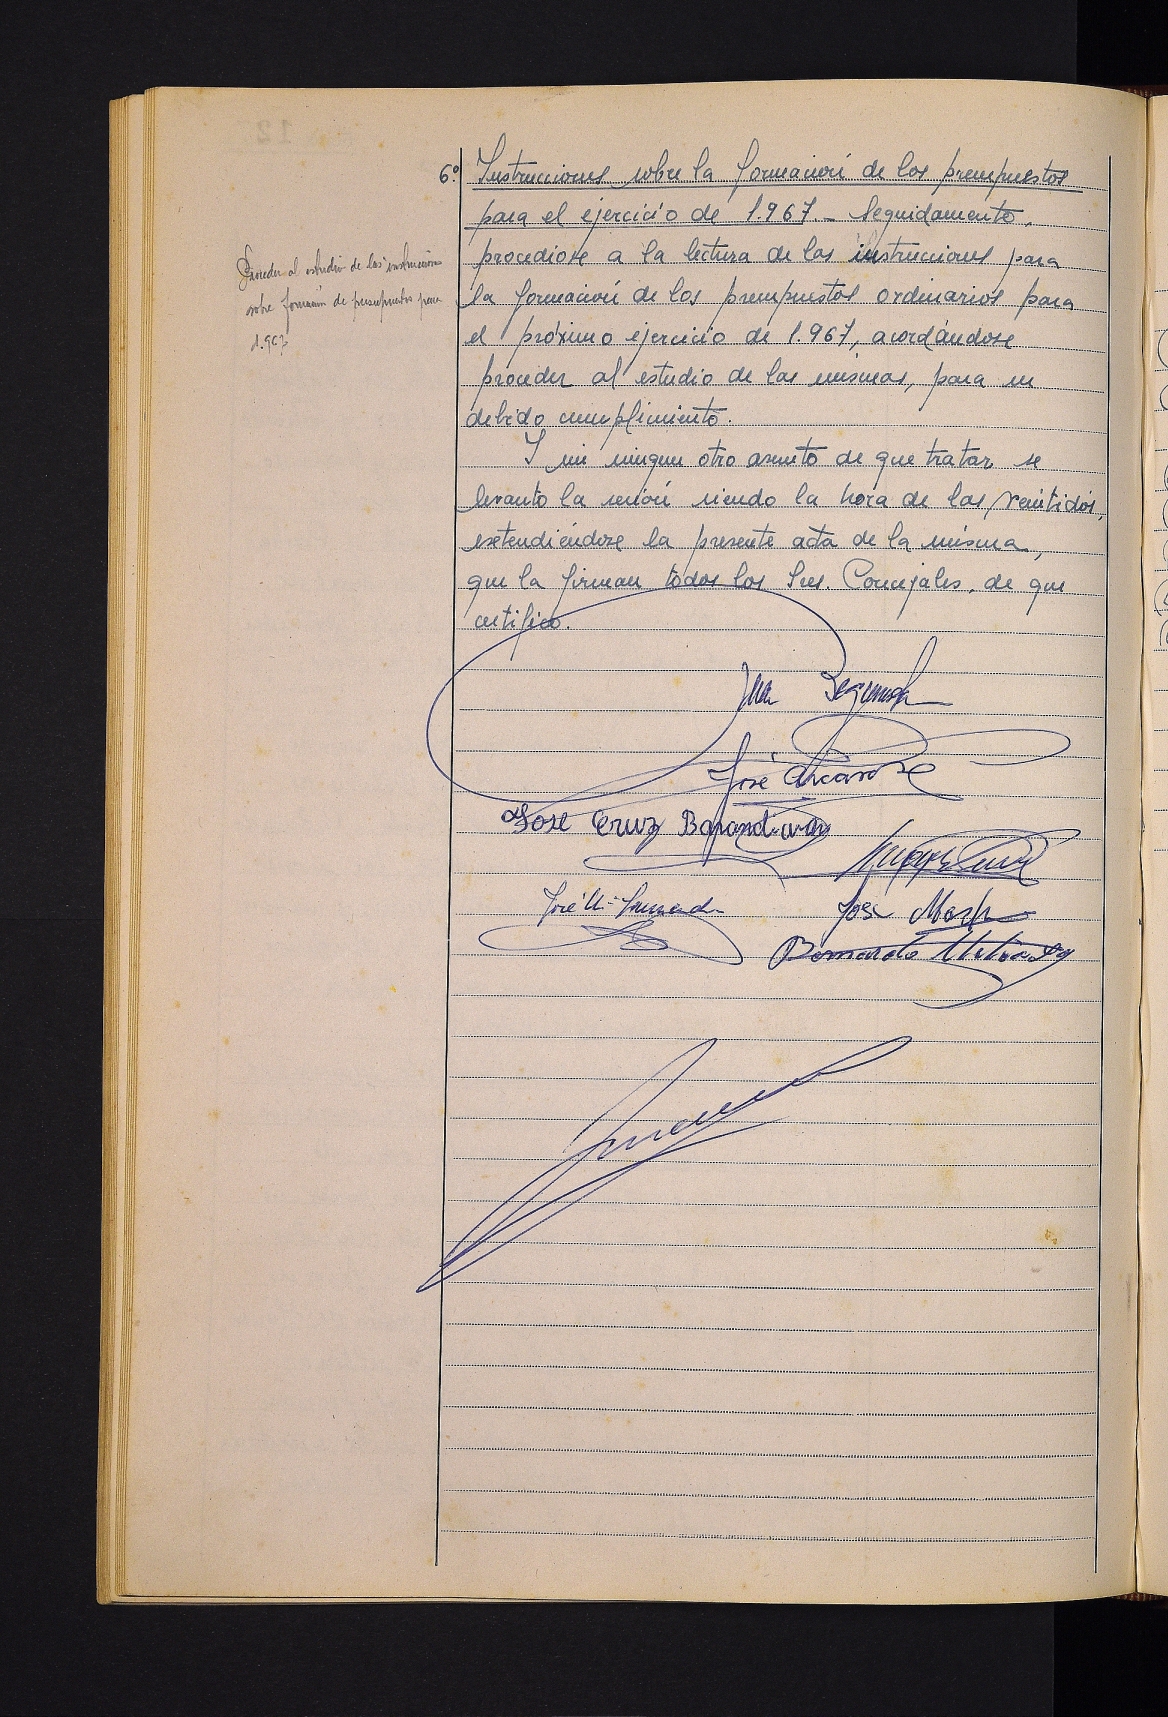 6º Instrucciones sobre la formación de los presupuestos
para el ejercicio de 1.967.- Seguidamente,
procediose a la lectura de las instrucciones para
la formación de los presupuestos ordinarios para
el próximo ejercicio de 1.967, acordándose
proceder al estudio de las mismas, para su
debido cumplimiento.
Y sin ningun otro asunto de que tratar se
levanto la sesión siendo la hora de las veintidós,
extendiéndose la presente acta de la misma,
que la firman todos los Sres. Concejales, de que
certifico.
Proceder al estudio de las instrucciones
sobre formación de presupuestos para
1.967
José
Jose Cruz
José Mª
José
Bernardo